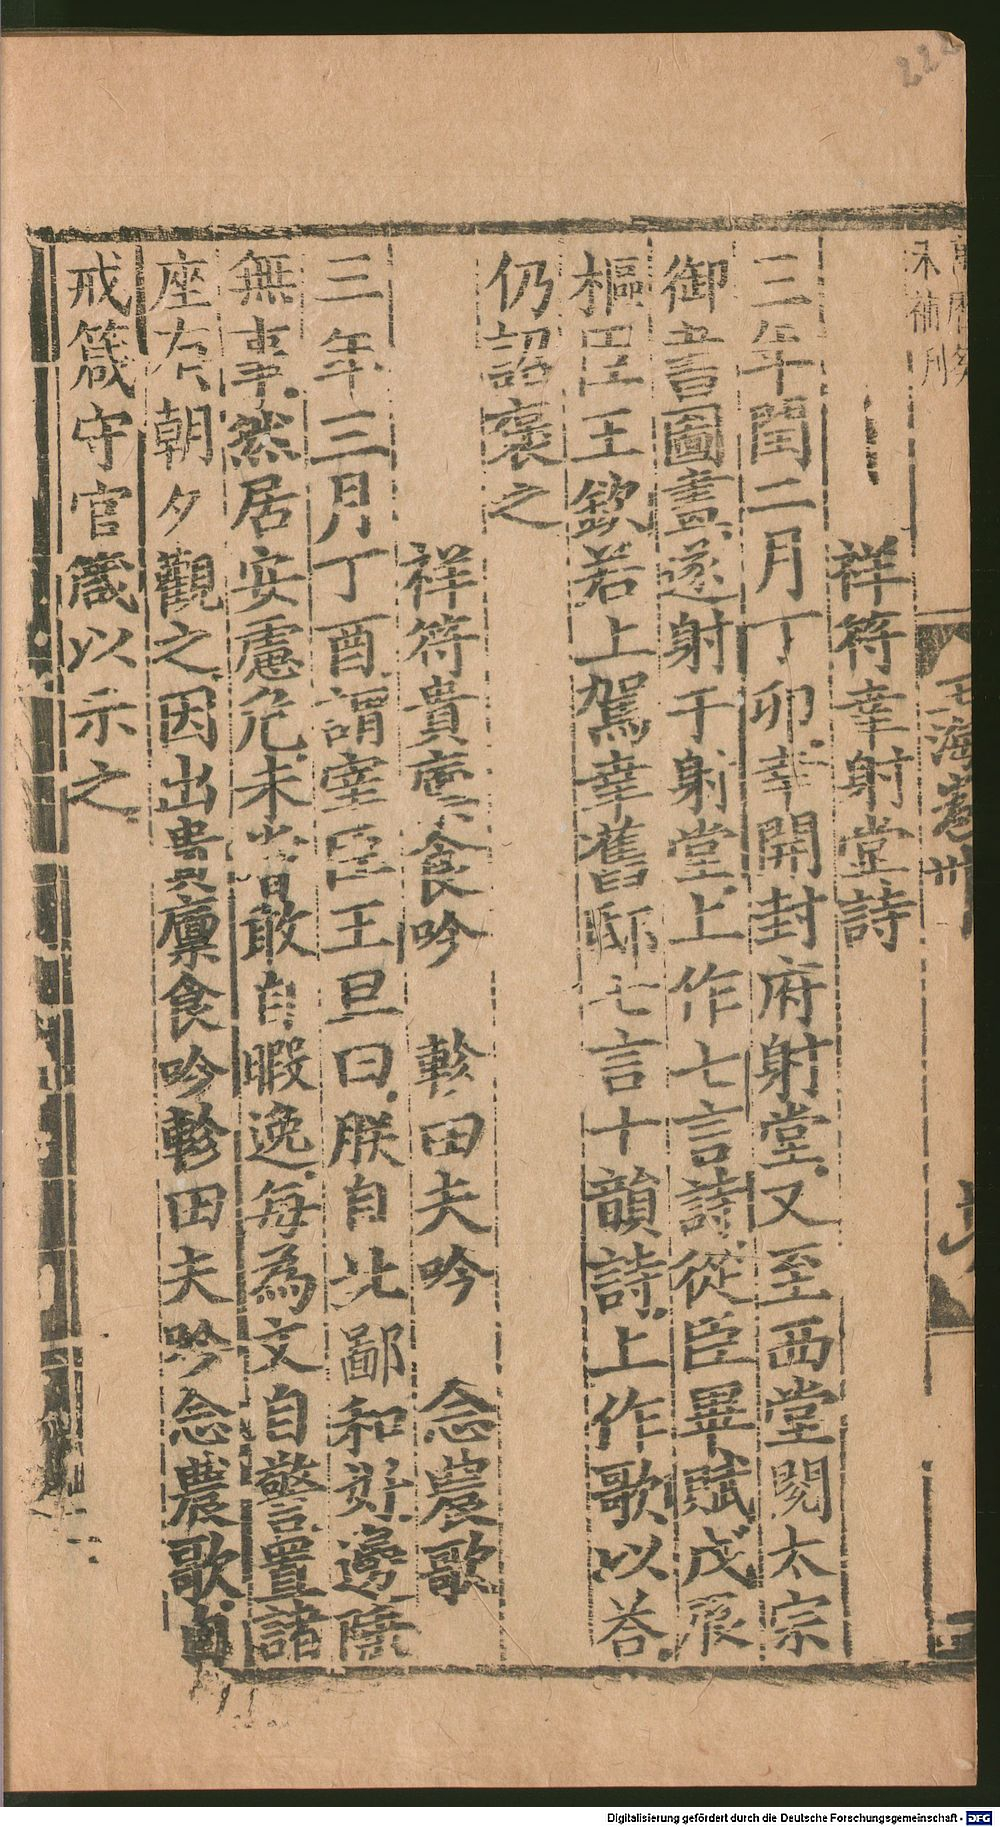 222
萬曆癸
未補刊
玉海卷卅
祥符幸射堂詩
三年閏二月丁卯幸開封府射堂又至西堂閱太宗
御書圖畫遂射于射堂上作七言詩從臣畢賦戊辰
樞臣王欽若上駕幸舊邸七言十韻詩上作歌以荅
仍詔褒之
祥符貴廩食吟 軫田夫吟 念農歌
三年三月丁酉謂宰臣王旦曰朕自北鄙和好邊陲
無事然居安慮危未嘗敢自暇逸每為文自警置諸
座右朝夕觀之因出貴廩食吟軫田夫吟念農歌自
戒箴守官箴以示之
Digitalisierung gefördert durch die Deutsche Forschungsgemeinschaft - DFG